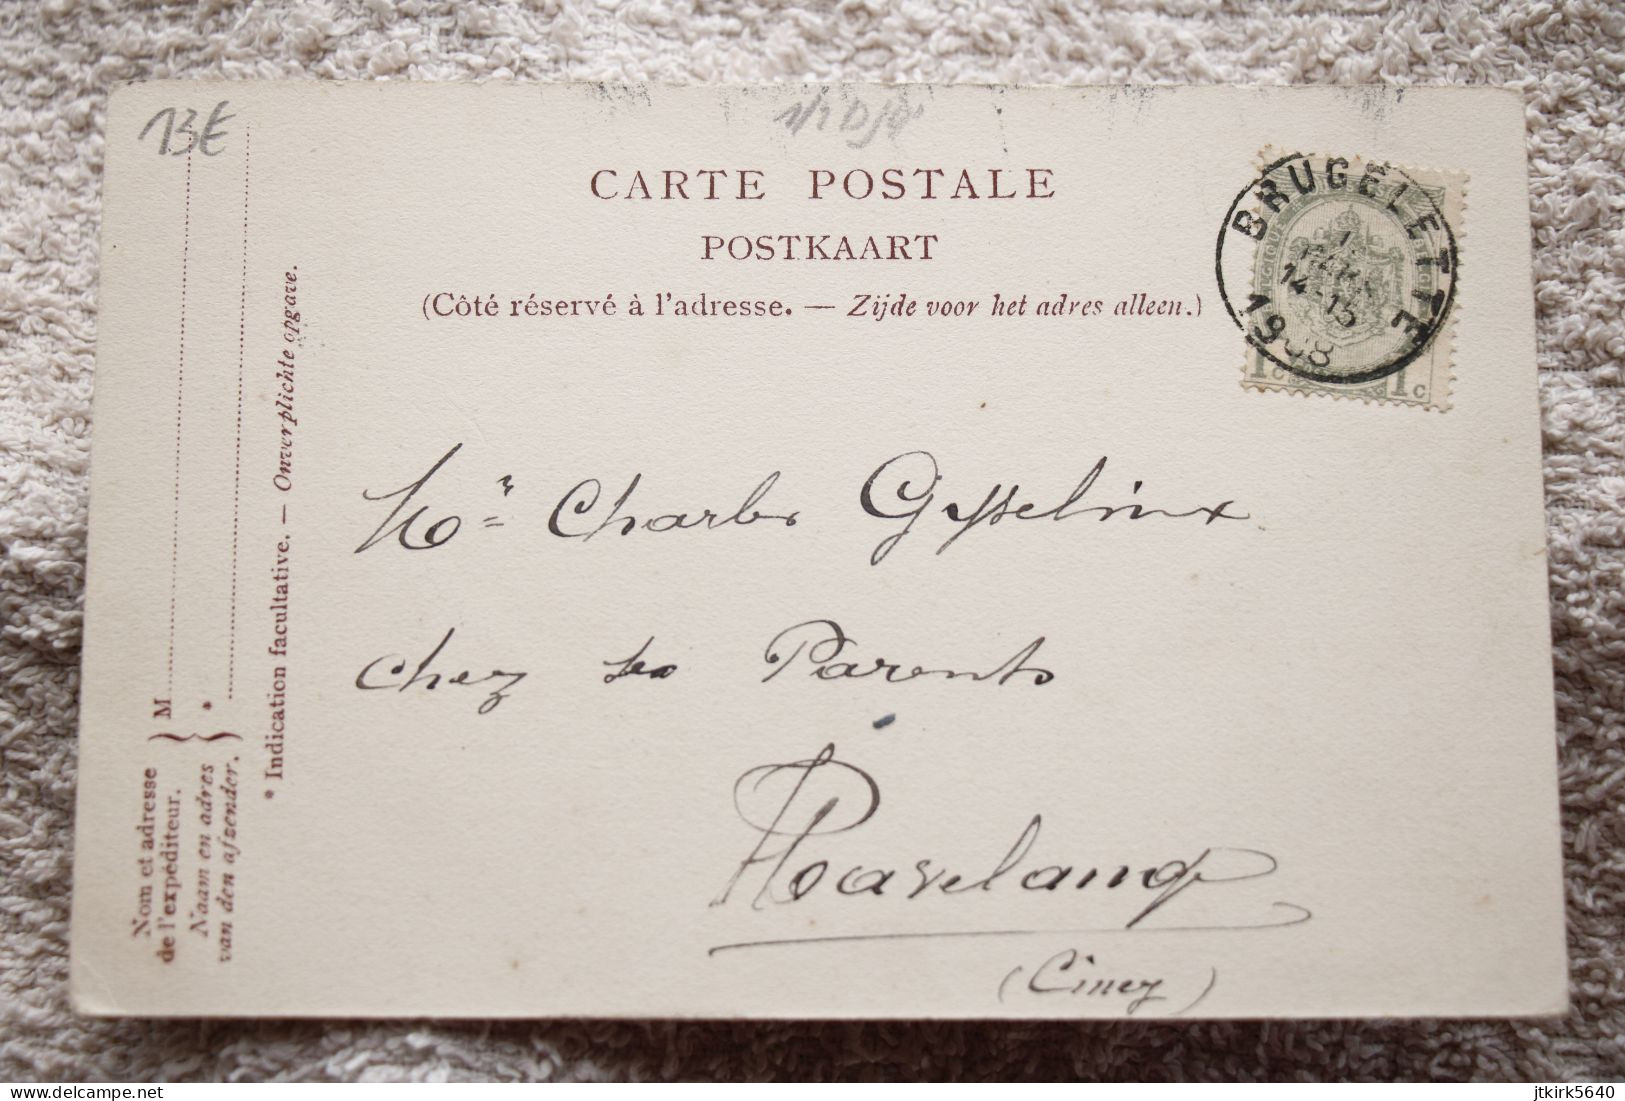 13€
CARTE POSTALE
POSTKAART
(Côté réservé à l'adresse. — Zijde voor het adres alleen.)
BRUGELETTE
14-15
1908
1 C 1 C
Mr Charles Gysselinx
chez ses Parents
(Ciney)
Nom et adresse
de l'expéditeur.
Naam en adres
van den afzender.
M
*
* Indication facultative. — Onverplichte opgave.
www.delcampe.net
jtkirk5640